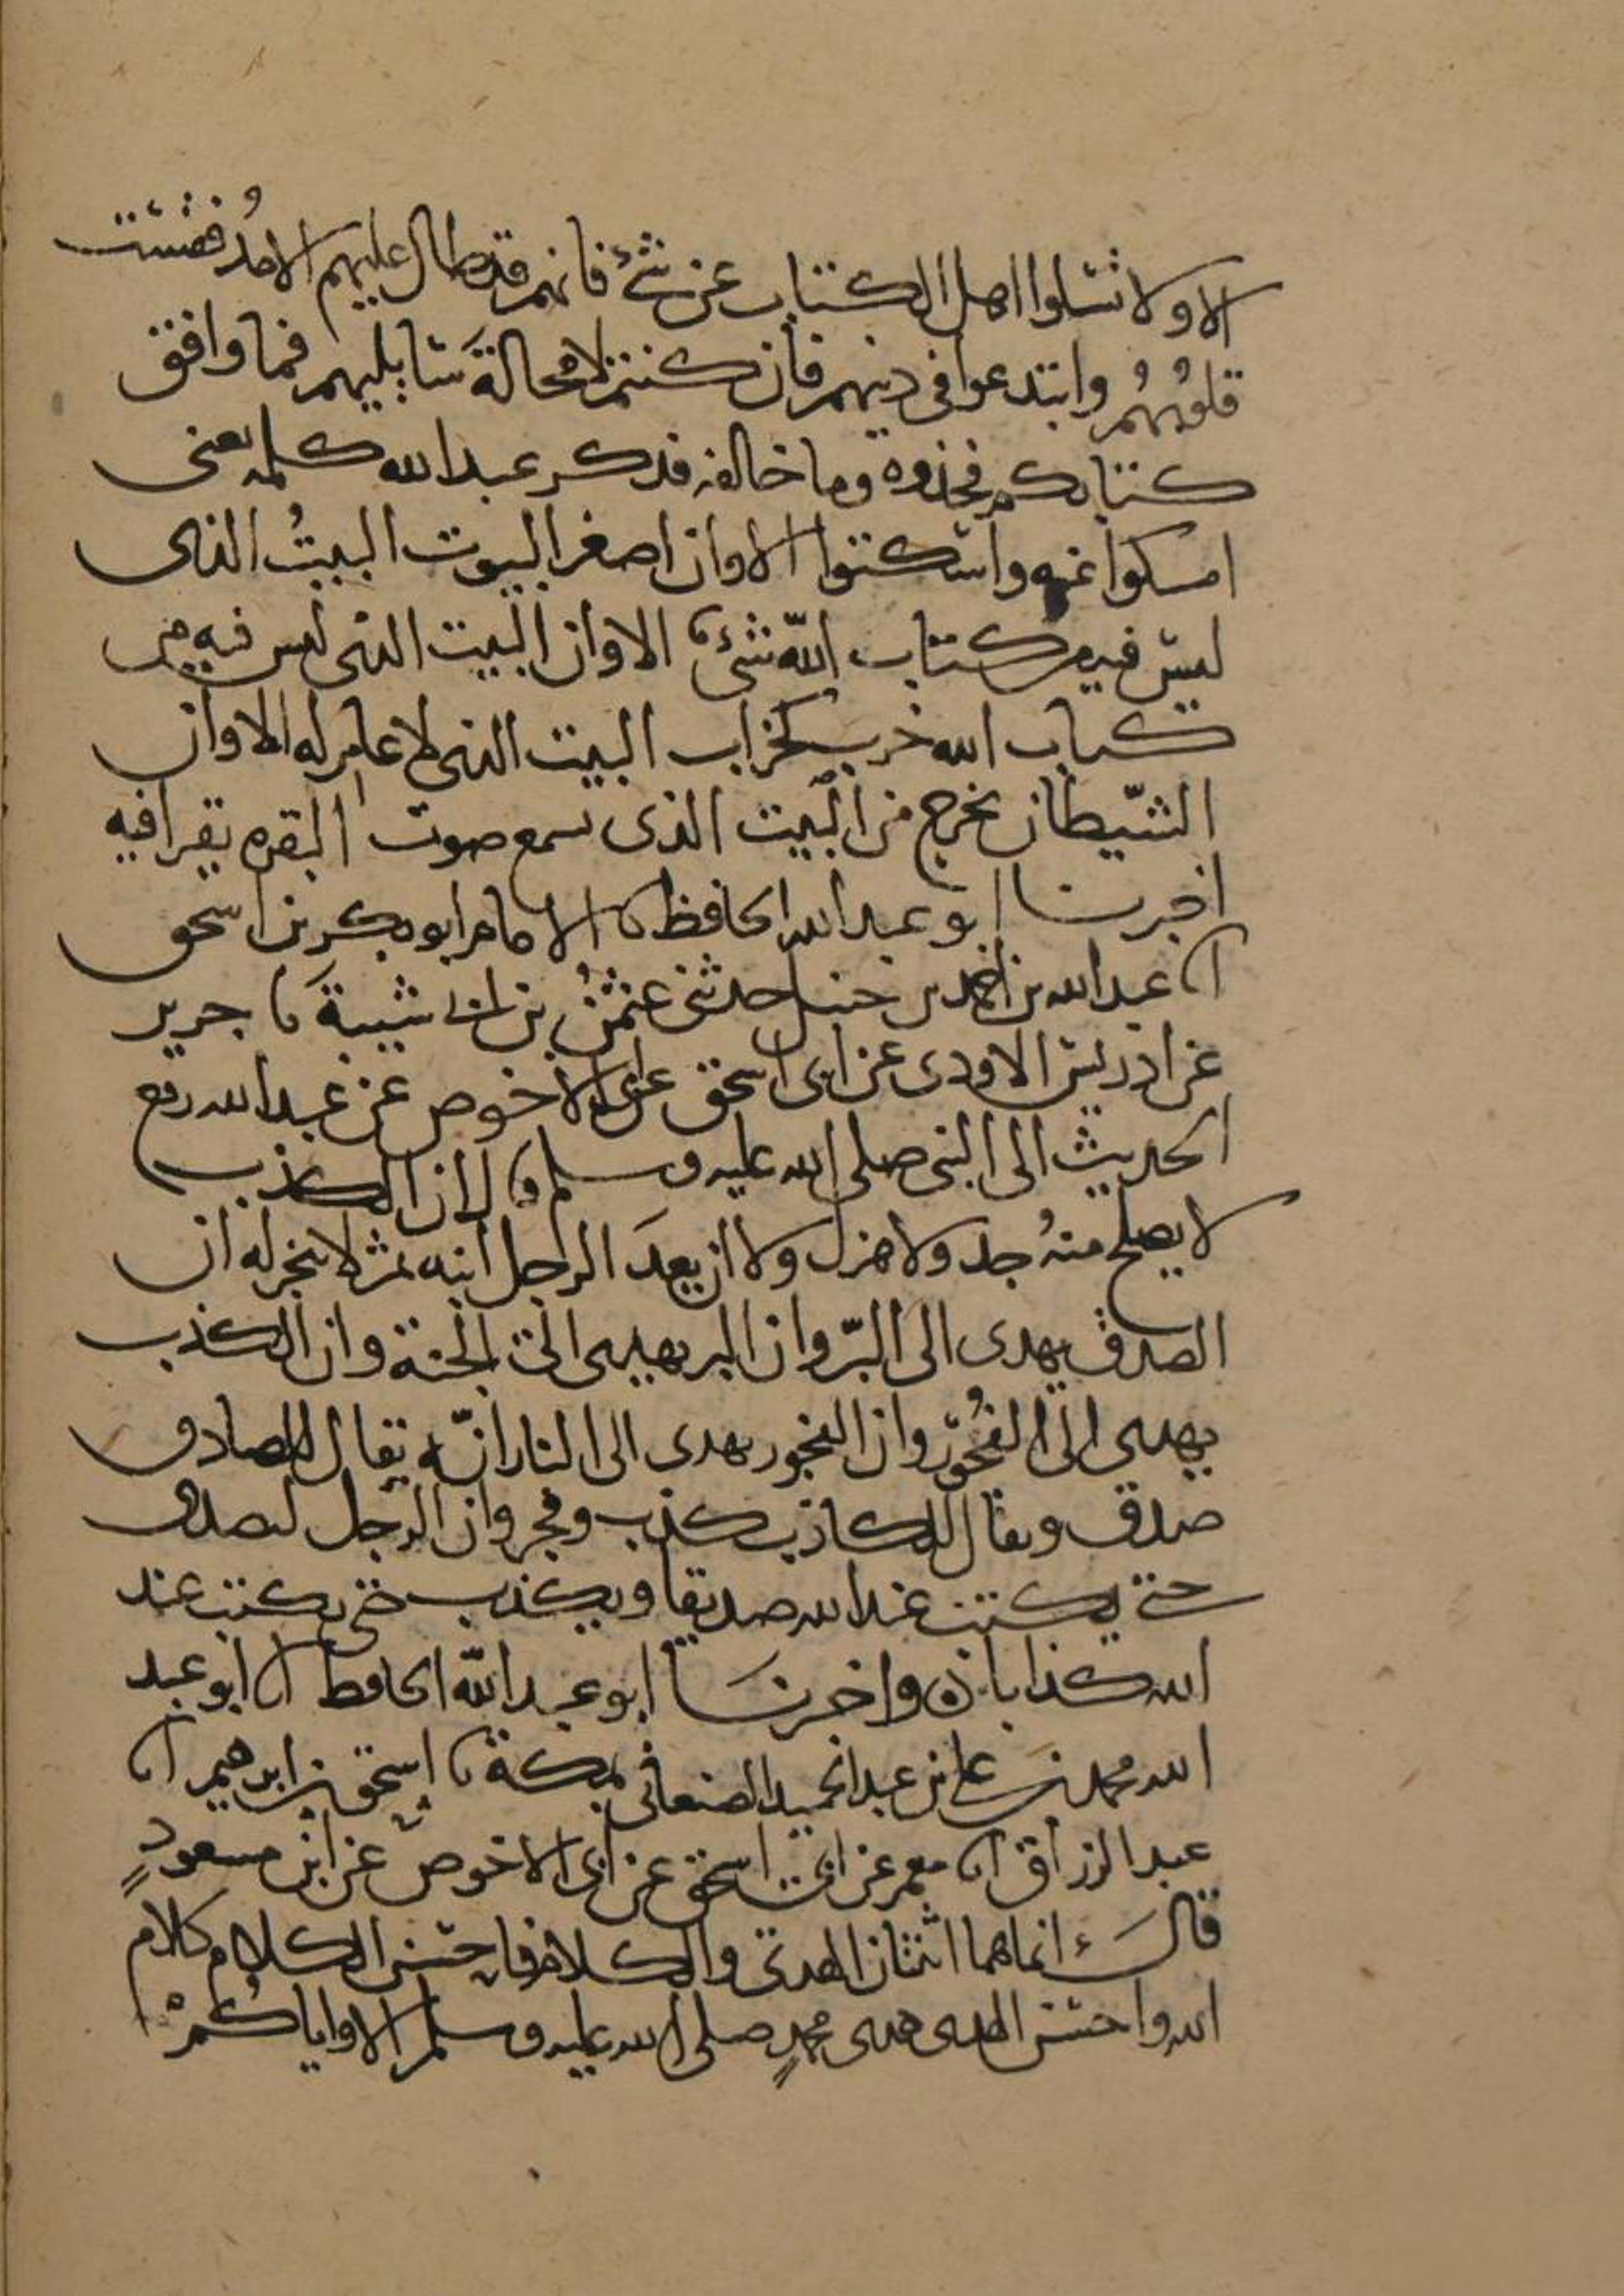 الا ولا تسلوا اهل الكتاب عن شئ فانهم قد طال عليهم الامدُ فقست
قلوبُهُم وابتدعوا في دينهم فان كنتم لا محالةَ سايليهم فما وافق
كتابكم فخذوه وما خالفه فذكر عبد الله كلمه يعنى
امسكوا عنه واسكتوا الا وان اصغر البيوت البيتُ الذى
ليس فيه من كتاب الله شئ الا وان البيت الذى ليس فيه من
كتاب الله خرب كخراب البيت الذى لا عامر له الا وان
الشيطان يخرج من البيت الذى سمع صوت البقره يقرا فيه
اخبرنا ابو عبد الله الحافظ نا الامام ابو بكر بن اسحق
انا عبد الله بن احمد بن حنبل حدثنى عثمن بن ابى شيبةَ نا جرير
عن ادريس الاودى عن ابى اسحق عن ابى الاحوص عن عبد الله رفع
الحديث الى النبى صلى الله عليه وسلم قال ان الكذب
لا يصلح منهُ جد ولا هزل ولا ان يعدَ الرجل ابنه ثم لا ينجز له ان
الصدق يهدى الى البرّ وان البر يهدى الى الجنة وان الكذب
يهدى الى الفُجُور وان الفجور يهدى الى النار انّه يقال للصادق
صدق وبر ويقال للكاذب كذب وفجر وان الرجل ليصدق
حتى يكتب عند الله صديقا ويكذب حتى يكتب عند
الله كذابا ه واخبرنَا ابو عبد الله الحافظ انا ابو عبد
الله محمد بن على بن عبد الحميد الصنعانى بمكة نا اسحق بن ابرهيم انا
عبد الرزاق انا معمر عن ابى اسحق عن ابى الاحوص عن ابن مسعودٍ
قالَ انما هما اثنتان الهدى والكلام فاحسن الكلام كلام
الله واحسن الهدى هدى محمدٍ صلى الله عليه وسلم الا واياكُمْ